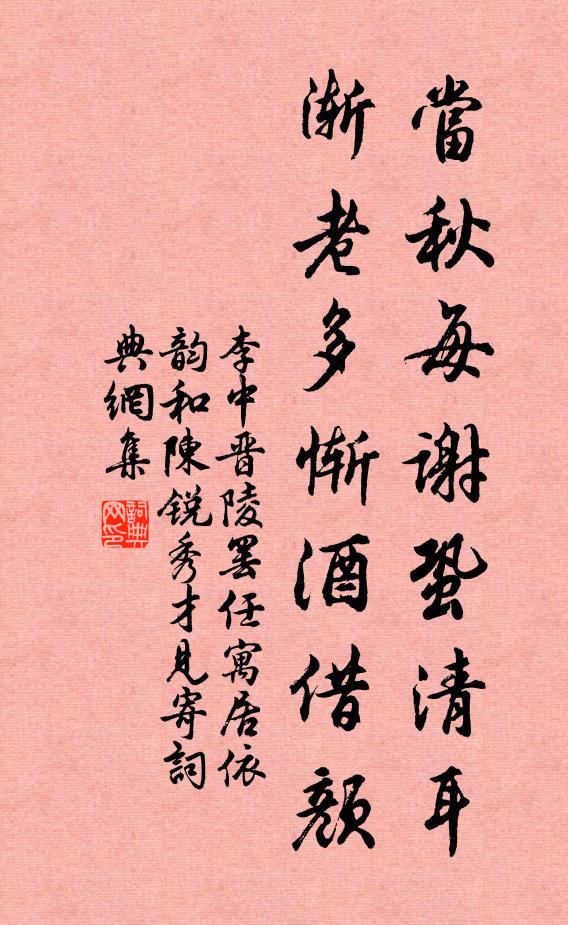 當秋每謝蛩清耳
漸老多慚酒借顏
李中晋陵罢任寓居依
韵和陳銳秀才見寄詞
典網集
詞典
网印